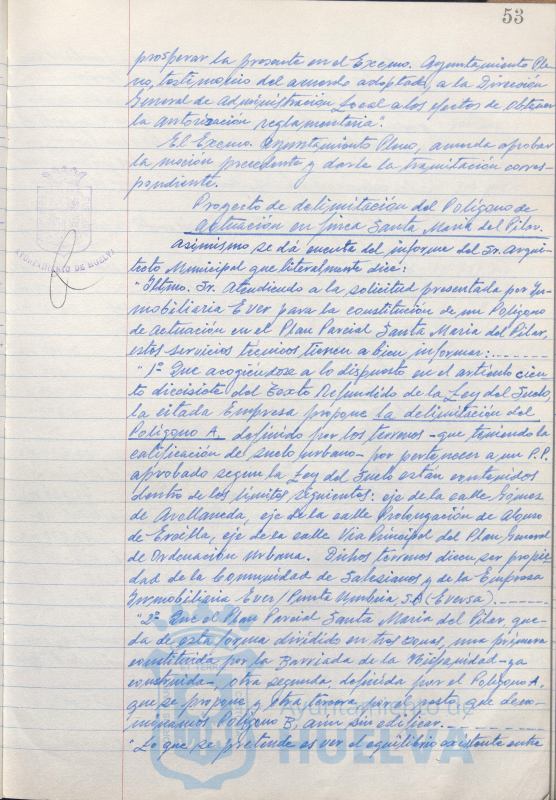 53
prosperar la presente en el Excmo. Ayuntamiento Ple-
no, testimonio del acuerdo adoptado, a la Dirección
General de Administración Local a los efectos de obtener
la autorización reglamentaria".
El Excmo. Ayuntamiento Pleno, acuerda aprobar
la moción precedente y darle la tramitación corres-
pondiente.
Proyecto de delimitación del Polígono de
actuación en finca Santa María del Pilar.
Asimismo se dá cuenta del informe del Sr. Arqui-
tecto Municipal que literalmente dice:
AYUNTAMIENTO DE HUELVA
"Iltmo. Sr. Atendiendo a la solicitud presentada por In-
mobiliaria Ever para la constitución de un Polígono
de actuación en el Plan Parcial Santa María del Pilar,
estos servicios técnicos tienen a bien informar:
"1º Que acogiéndose a lo dispuesto en el artículo cien-
to diecisiete del Texto Refundido de la Ley del Suelo,
la citada Empresa propone la delimitación del
Polígono A, definido por los terrenos - que teniendo la
calificación de suelo urbano - por pertenecer a un P.P.
aprobado segun la Ley del Suelo están contenidos
dentro de los límites siguientes: eje de la calle Gómez
de Avellaneda, eje de la calle Prolongación de Alonso
de Ercilla, eje de la calle Vía Principal del Plan General
de Ordenación Urbana. Dichos terrenos dicen ser propie-
dad de la Comunidad de Salesianos y de la Empresa
Inmobiliaria Ever/Punta Umbría, SA (Eversa).
"2º Que el Plan Parcial Santa María del Pilar, que-
da de esta forma dividido en tres zonas, una primera
constituida por la Barriada de la Hispanidad - ya
construida - otra segunda, definida por el Polígono A,
que se propone y otra tercera por el resto que deno-
minamos Polígono B, aún sin edificar.
"Lo que se pretende es ver el equilibrio existente entre
Ayuntamiento de
HUELVA